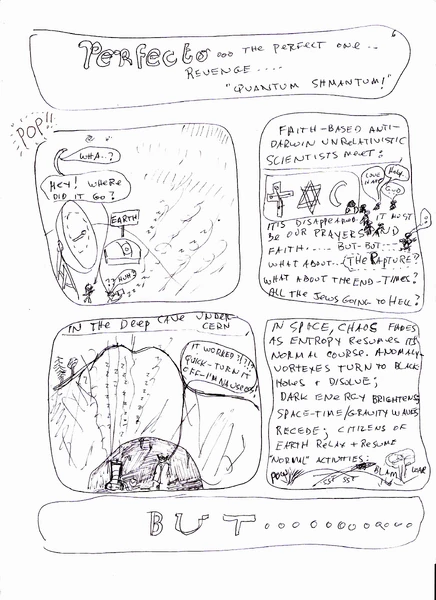 PERFECTO... THE PERFECT ONE...
REVENGE....
"QUANTUM SHMANTUM!"
POP!!
WHA..?
HEY! WHERE
DID IT GO?
EARTH
?? HUH?
FAITH-BASED ANTI-
DARWIN UNRELATIVISTIC
SCIENTISTS MEET:
HOLY
GOD
IT'S DISAPPEARED.. IT MUST
BE OUR PRAYERS AND
FAITH..... BUT-BUT...
WHAT ABOUT...THE RAPTURE?
WHAT ABOUT THE END-TIMES?
ALL THE JEWS GOING TO HELL?
IN THE DEEP CAVE UNDER
CERN
IT WORKED!?!?!
QUICK-TURN IT
OFF-I'M NAUSEOUS!
IN SPACE, CHAOS FADES
AS ENTROPY RESUMES ITS
NORMAL COURSE. ANOMALY-
VORTEXES TURN TO BLACK
HOLES + DISOLVE;
DARK ENERGY BRIGHTENS
SPACE-TIME/GRAVITY WAVES
RECEDE; CITIZENS OF
EARTH RELAX + RESUME
"NORMAL" ACTIVITIES:
POW
SST SST
BLAM
BUT..........